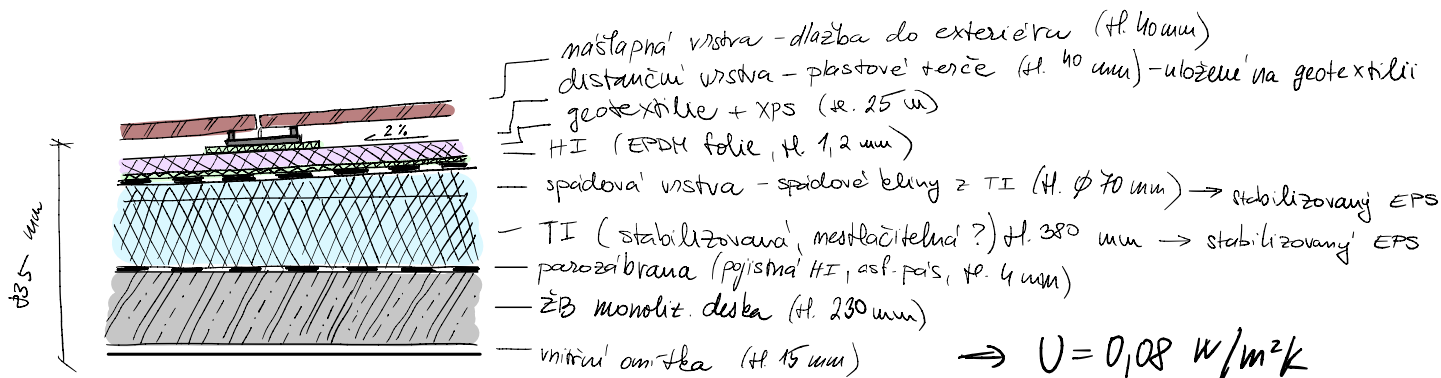 nášlapná vrstva - dlažba do exteriéru (tl. 40 mm)
distanční vrstva - plastové terče (tl. 40 mm) - uložené na geotextilii
geotextilie + XPS (tl. 25 m)
HI (EPDM folie, tl. 1,2 mm)
spádová vrstva - spádové klíny z TI (tl. ϕ 70 mm) → stabilizovaný EPS
TI (stabilizovaná, nestlačitelná ?) tl. 380 mm → stabilizovaný EPS
parozábrana (pojistná HI, asf. pás, tl. 4 mm)
ŽB monolit. deska (tl. 230 mm)
vnitřní omítka (tl. 15 mm)
⇒ U = 0,08 W/m²K
2%
mm